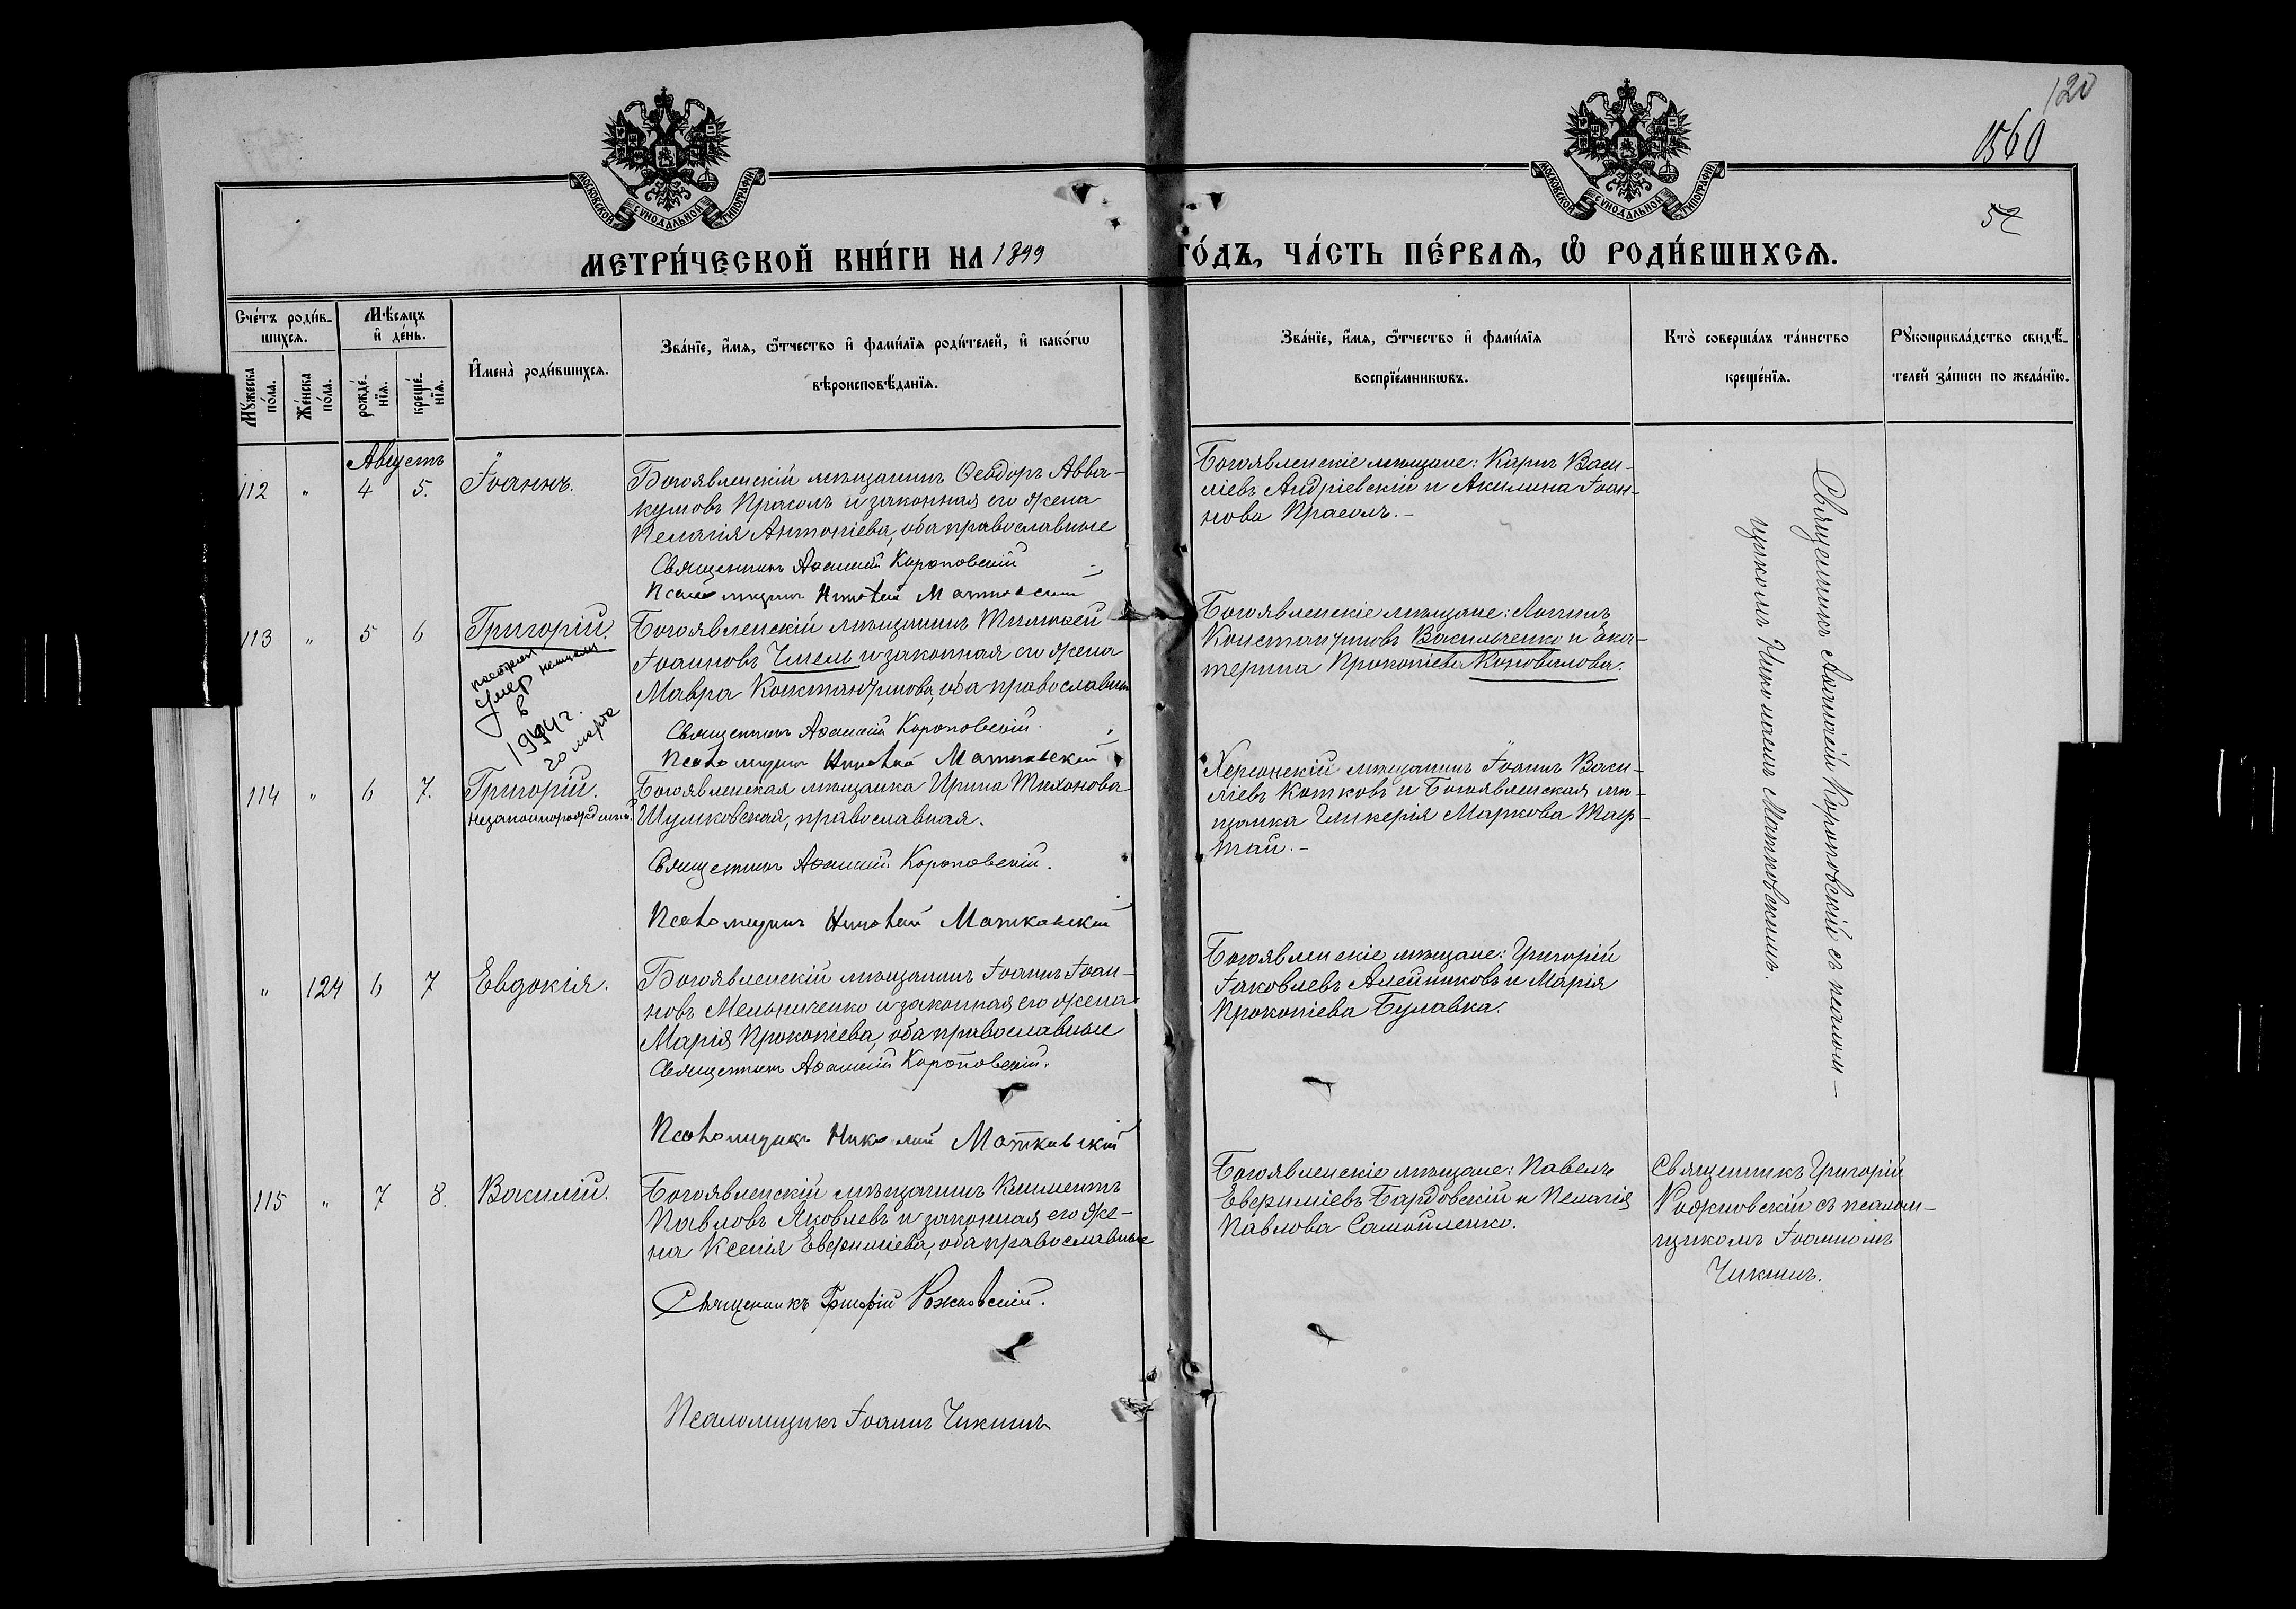 120
1560
52
МОСКОВСКОЙ СѴНОДАЛЬНОЙ ТИПОГРАФІИ
МОСКОВСКОЙ СѴНОДАЛЬНОЙ ТИПОГРАФІИ
МЕТРИ́ЧЕСКОЙ КНИ́ГИ НА 1899 ГО́ДЪ, ЧА́СТЬ ПЕ́РВАѦ, Ѡ҆ РОДИ́ВШИХСѦ.
Сче́тъ роди́в-
шихсѧ.
Мꙋ́жеска по́ла.
Же́нска по́ла.
Мѣ́сѧцъ и҆ де́нь.
рожде́-нїѧ.
креще́-нїѧ.
И҆мена̀ роди́вшихсѧ.
Зва́нїе, и҆́мѧ, ѻ҆́тчество и҆ фами́лїѧ роди́телей, и҆ како́гѡ
вѣроисповѣ́данїѧ.
Зва́нїе, и҆́мѧ, ѻ҆́тчество и҆ фами́лїѧ
воспрїе́мникѡвъ.
Кто̀ соверша́лъ та́инство
креще́нїѧ.
Рꙋкоприкла́дство свидѣ́-
телей за́писи по жела́нїю.
Августъ
112 " 4 5. Іоаннъ.
Богоявленскій мѣщанинъ Ѳеодоръ Авва-
кумовъ Прасолъ и законная его жена
Пелагія Антоніева, оба православные
Священникъ Аѳанасій Короповскій
Псаломщикъ Николай Матковскій
Богоявленскіе мѣщане: Карпъ Васи-
ліевъ Андріевскій и Акилина Іоан-
нова Прасолъ.-
113 " 5 6 Григорій.
умер
в
1944 г.
20 марта
Богоявленскій мѣщанинъ Тимоѳей
Іоанновъ Чмель и законная его жена
Мавра Константинова, оба православные
Священникъ Аѳанасій Короповскій.
Псаломщикъ Николай Матковскій
Богоявленскіе мѣщане: Логгинъ
Константиновъ Васильченко и Ека-
терина Прокопіева Коновалова.
114 " 6 7. Григорій.
незаконнорожденный.
Богоявленская мѣщанка Ирина Тихонова
Шумковская, православная.
Священникъ Аѳанасій Короповскій.
Псаломщикъ Николай Матковскій
Херсонскій мѣщанинъ Іоаннъ Васи-
ліевъ Котковъ и Богоявленская мѣ-
щанка Гликерія Маркова
" 124 6 7 Евдокія.
Богоявленскій мѣщанинъ Іоаннъ Іоан-
новъ Мельниченко и законная его жена
Марія Прокопіева, оба православные
Священникъ Аѳанасій Короповскій.
Псаломщикъ Николай Матковскій
Богоявленскіе мѣщане: Григорій
Іаковлевъ Алейниковъ и Марія
Прокопіева Булавка.
Священникъ Аѳанасій Короповскій съ псалом-
щикомъ Николаемъ Матковскимъ.
115 " 7 8. Василій.
Богоявленскій мѣщанинъ Климентъ
Павловъ Яковлевъ и законная его же-
на Ксенія Евѳиміева, оба православные
Священникъ Григорій Рожновскій.
Псаломщикъ Іоаннъ Чикинъ
Богоявленскіе мѣщане: Павелъ
Евѳиміевъ Бардовскій и Пелагія
Павлова Самойленко.
Священникъ Григорій
Рожновскій съ псалом-
щикомъ Іоанномъ